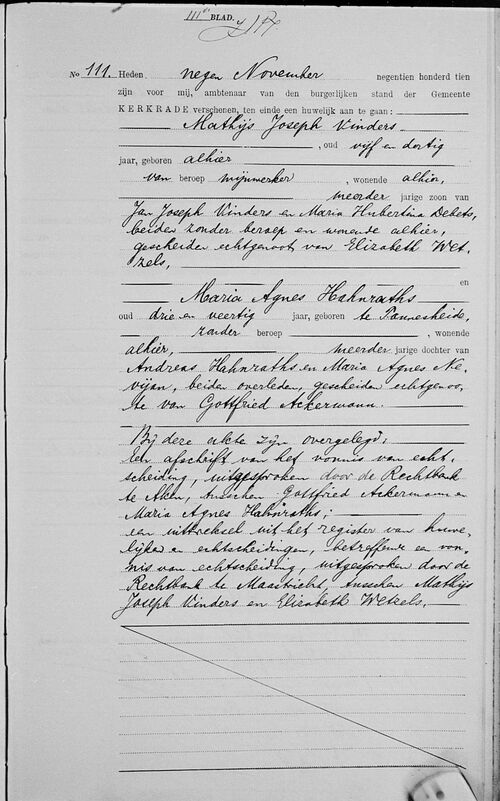 IIIe BLAD.
No 111. Heden negen November negentien honderd tien
zijn voor mij, ambtenaar van den burgerlijken stand der Gemeente
KERKRADE verschenen, ten einde een huwelijk aan te gaan:
Mathijs Joseph Vinders
, oud vijf en dertig
jaar, geboren alhier
van beroep mijnwerker, wonende alhier,
meerder jarige zoon van
Jan Joseph Vinders en Maria Hubertina Debets,
beiden zonder beroep en wonende alhier,
gescheiden echtgenoot van Elizabeth Wet-
zels,
en
Maria Agnes Hahnraths
oud drie en veertig jaar, geboren te Pannesheide,
zonder beroep, wonende
alhier, meerder jarige dochter van
Andreas Hahnraths en Maria Agnes Ne-
vijan, beiden overleden, gescheiden echtgenoo-
te van Gottfried Ackermann.
Bij deze akte zijn overgelegd:
Een afschrift van het vonnis van echt-
scheiding, uitgesproken door de Rechtbank
te Aken, tusschen Gottfried Ackermann en
Maria Agnes Hahnraths;
een uittreksel uit het register van huwe-
lijken en echtscheidingen, betreffende een von-
nis van echtscheiding, uitgesproken door de
Rechtbank te Maastricht, tusschen Mathijs
Joseph Vinders en Elizabeth Wetzels.